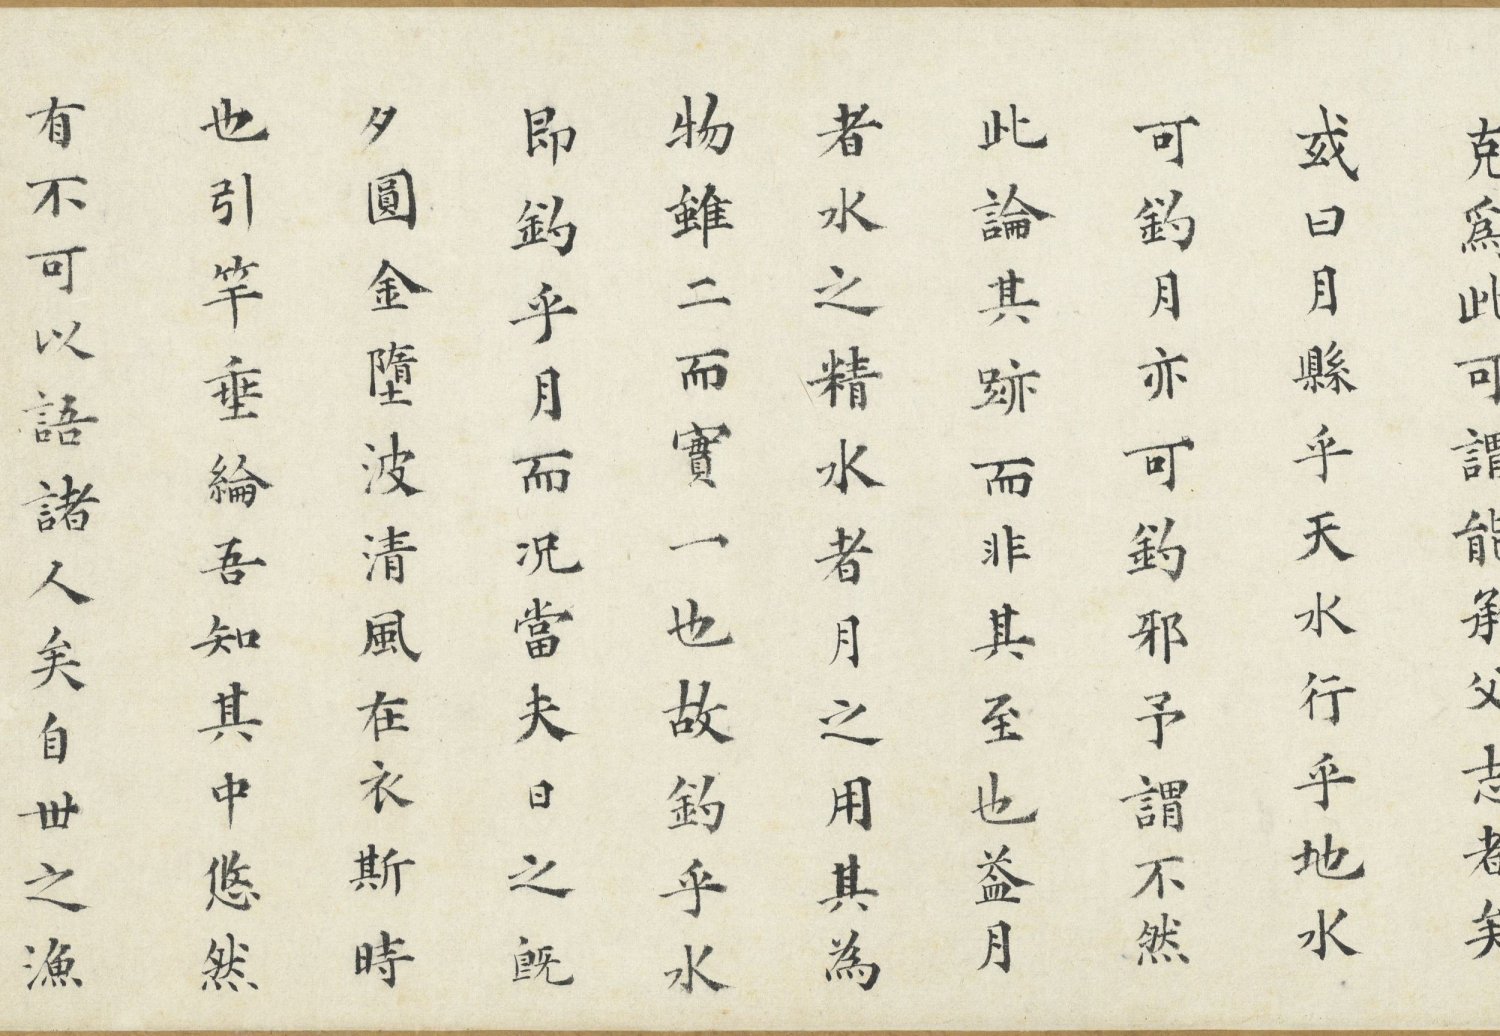 克為此可謂能承父志者矣
或曰月縣乎天水行乎地水
可釣月亦可釣邪予謂不然
此論其跡而非其至也葢月
者水之精水者月之用其為
物雖二而實一也故釣乎水
即釣乎月而况當夫日之既
夕圓金墮波清風在衣斯時
也引竿垂綸吾知其中悠然
有不可以語諸人矣自丗之漁